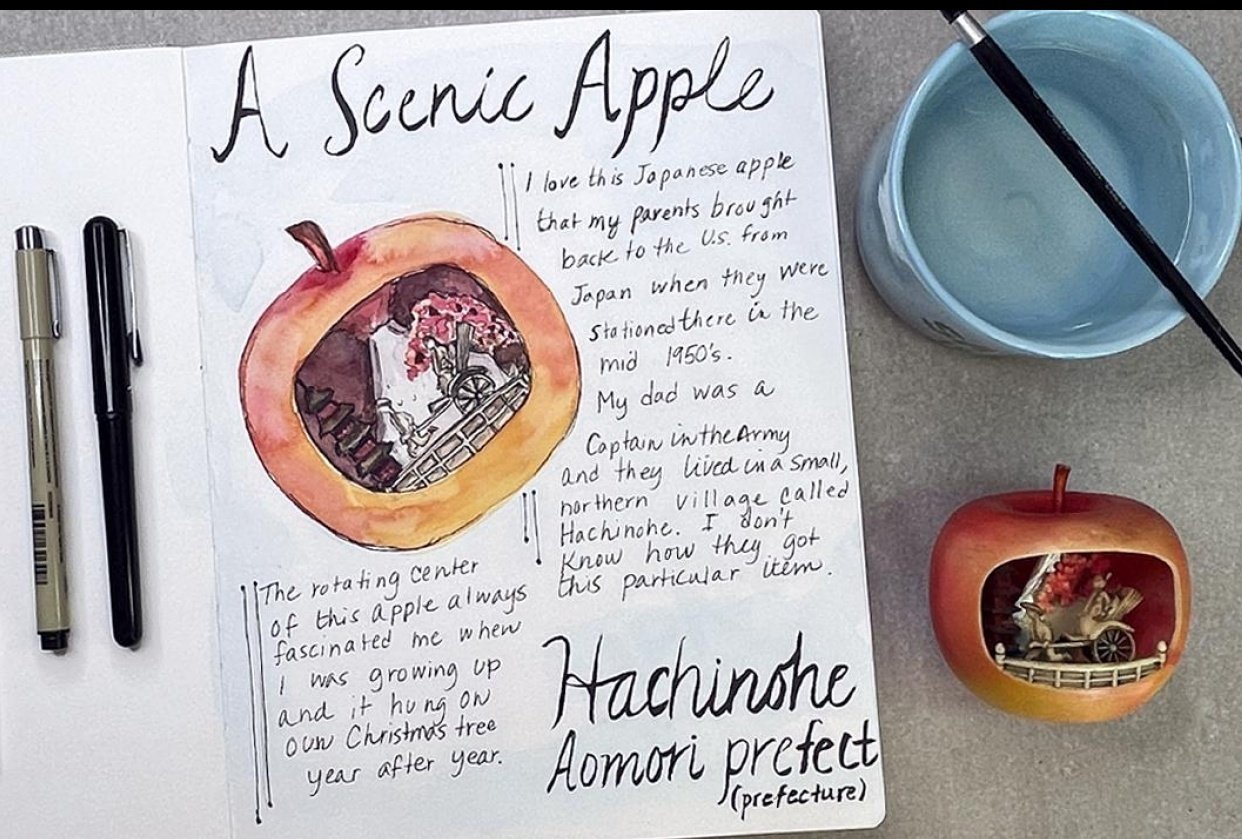 A Scenic Apple
I love this Japanese apple
that my parents brought
back to the U.S. from
Japan when they were
stationed there in the
mid 1950's.
My dad was a
Captain in the Army
and they lived in a small,
northern village called
Hachinohe. I don't
know how they got
this particular item.
The rotating center
of this apple always
fascinated me when
I was growing up
and it hung on
our Christmas tree
year after year.
Hachinohe
Aomori prefect
(prefecture)